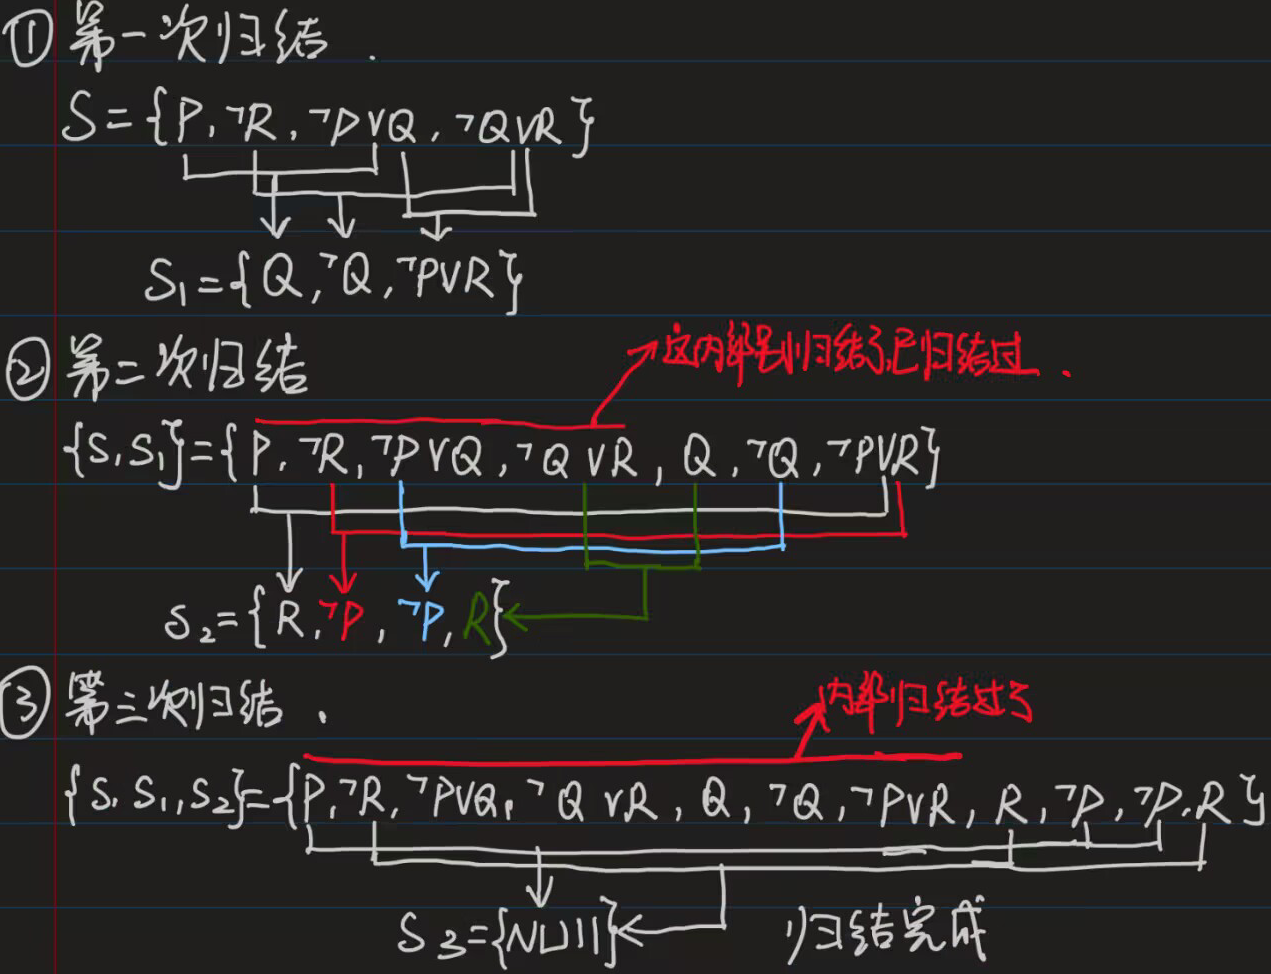 ① 第一次归结.
S={P,¬R,¬P∨Q,¬Q∨R}
S₁={Q,¬Q,¬P∨R}
② 第二次归结
这内部归结了,已归结过.
{S,S₁}={P,¬R,¬P∨Q,¬Q∨R,Q,¬Q,¬P∨R}
S₂={R,¬P,¬P,R}
③ 第三次归结.
内部归结过了
{S,S₁,S₂}={P,¬R,¬P∨Q,¬Q∨R,Q,¬Q,¬P∨R,R,¬P,¬P,R}
S₃={NUll} 归结完成